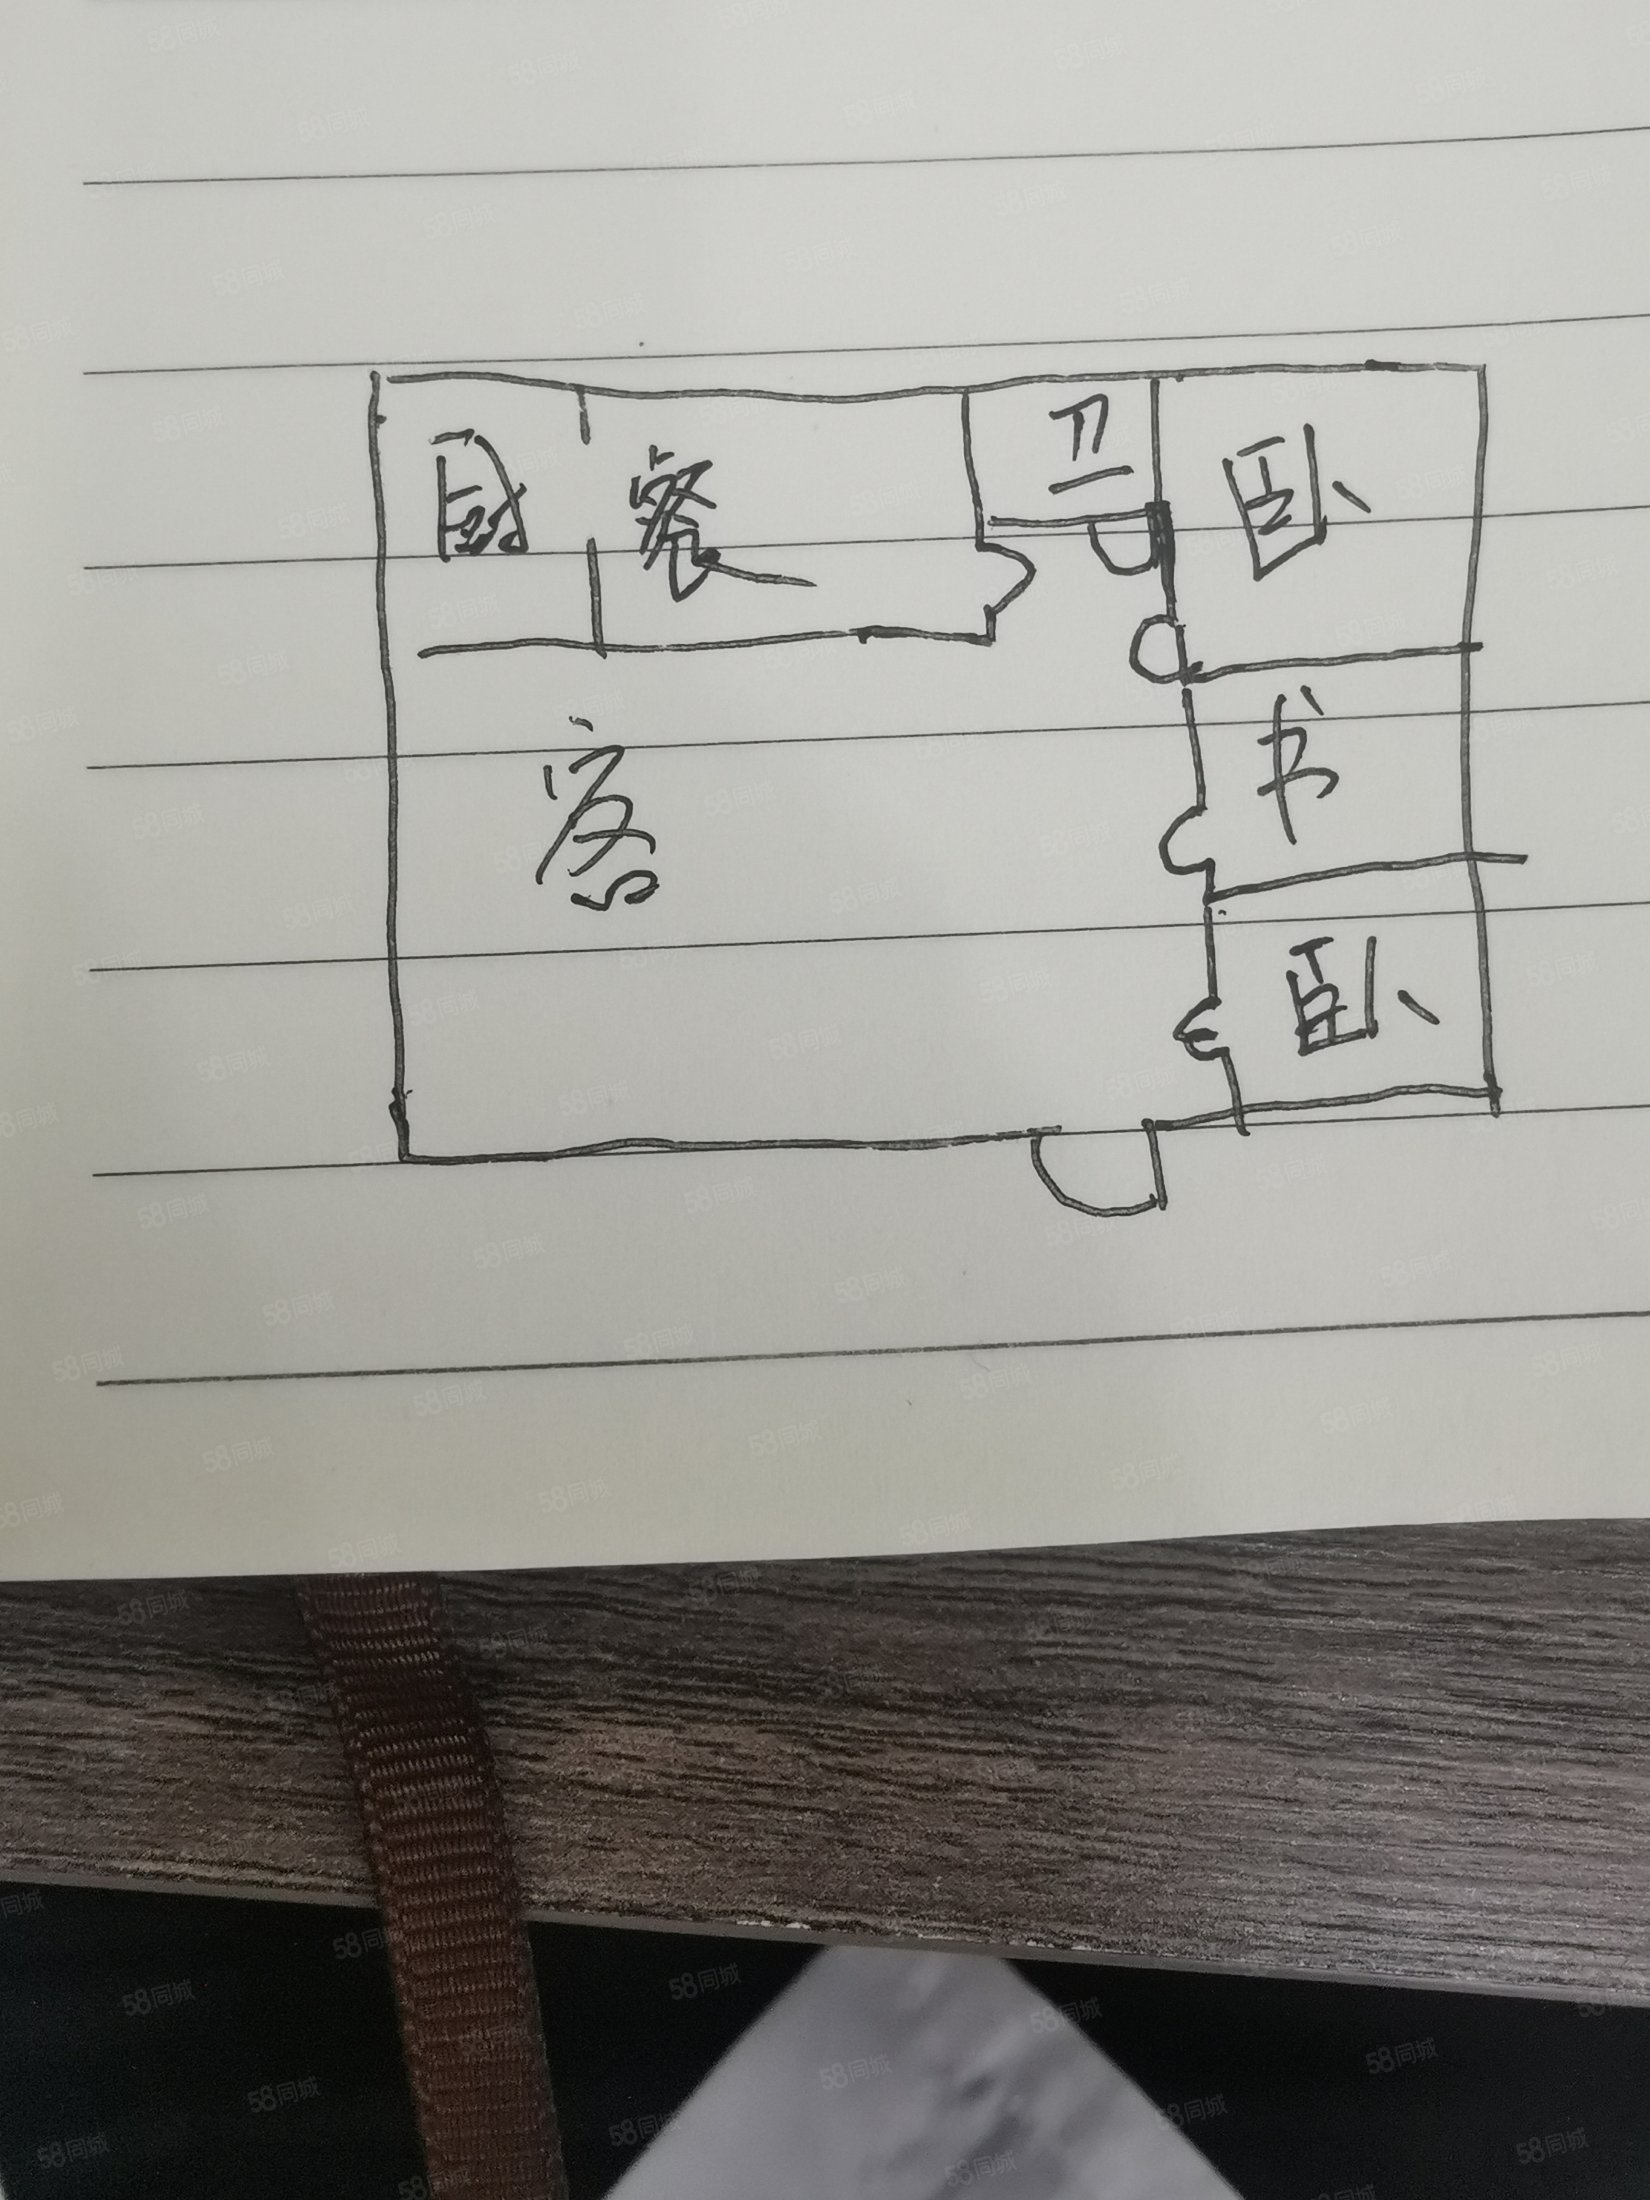 厨 餐 卫 卧
客 书
卧
58同城